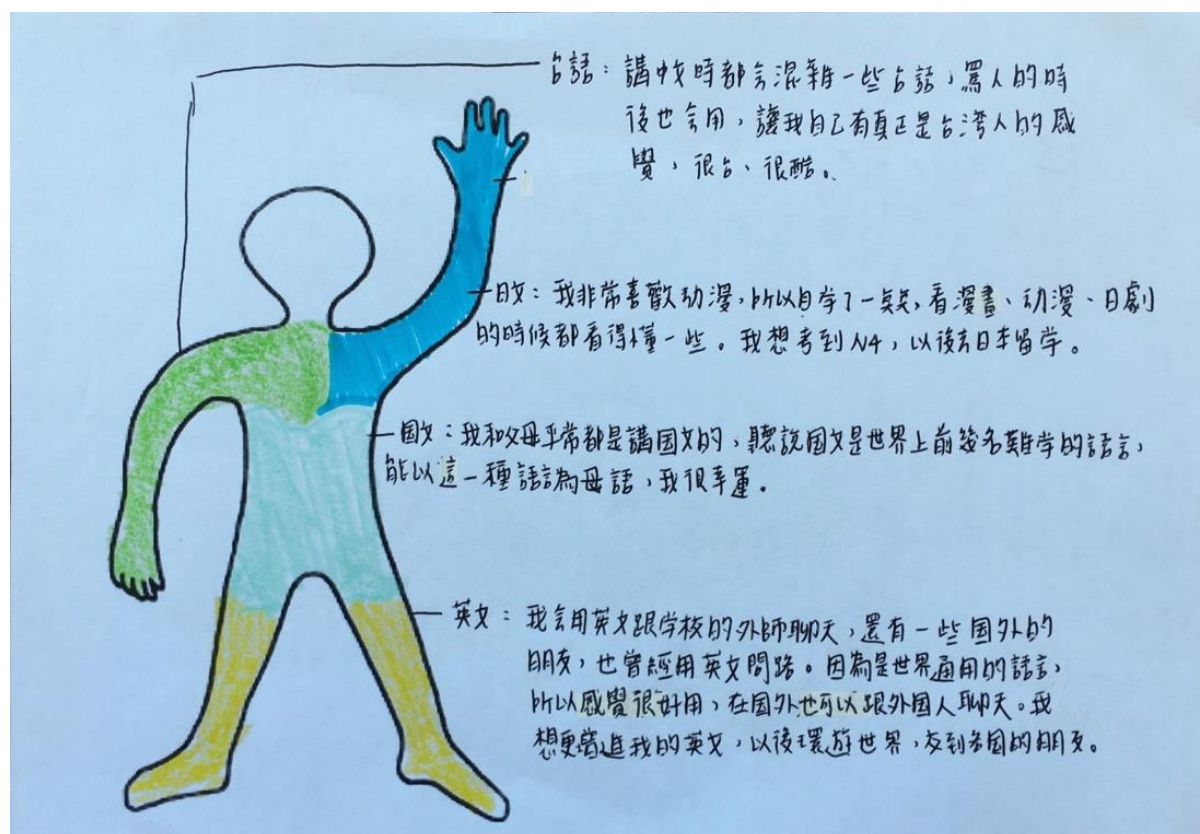 台語：講中文時都会混雜一些台語，罵人的時
後也会用，讓我自己有真正是台湾人的感
覺，很台、很酷。
日文：我非常喜歡动漫，所以自学了一點點，看漫畫、动漫、日劇
的時候都看得懂一些。我想考到N4，以後去日本留学。
国文：我和父母平常都是講国文的，聽說国文是世界上前幾名難学的語言，
能以這一種語言為母語，我很幸運。
英文：我会用英文跟学校的外師聊天，還有一些国外的
朋友，也曾經用英文問路。因為是世界通用的語言，
所以感覺很好用，在国外也可以跟外国人聊天。我
想更增進我的英文，以後環遊世界，交到各国的朋友。